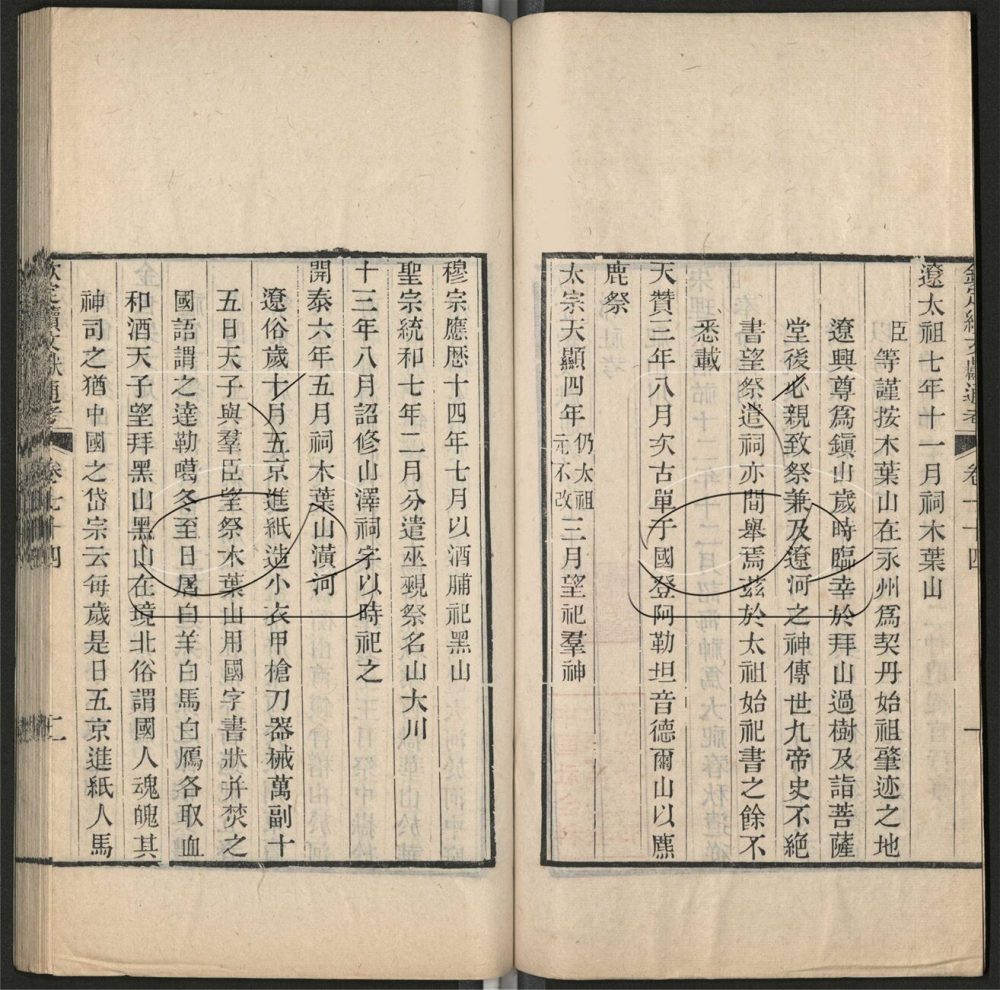 遼太祖七年十一月祠木葉山
臣等謹按木葉山在永州爲契丹始祖肇迹之地
遼興尊爲鎭山歲時臨幸於拜山過樹及詣菩薩
堂後必親致祭兼及遼河之神傳世九帝史不絕
書望祭遣祠亦間舉焉茲於太祖始祀書之餘不
悉載
天贊三年八月次古單于國登阿勒坦音德爾山以麃
鹿祭
太宗天顯四年仍太祖元不改三月望祀羣神
穆宗應歷十四年七月以酒脯祀黑山
聖宗統和七年二月分遣巫覡祭名山大川
十三年八月詔修山澤祠宇以時祀之
開泰六年五月祠木葉山潢河
遼俗歲十月五京進紙造小衣甲槍刀器械萬副十
五日天子與羣臣望祭木葉山用國字書狀并焚之
國語謂之達勒噶冬至日屠白羊白馬白鴈各取血
和酒天子望拜黑山黑山在境北俗謂國人魂魄其
神司之猶中國之岱宗云每歲是日五京進紙人馬
欽定續文獻通考 卷七十四 二